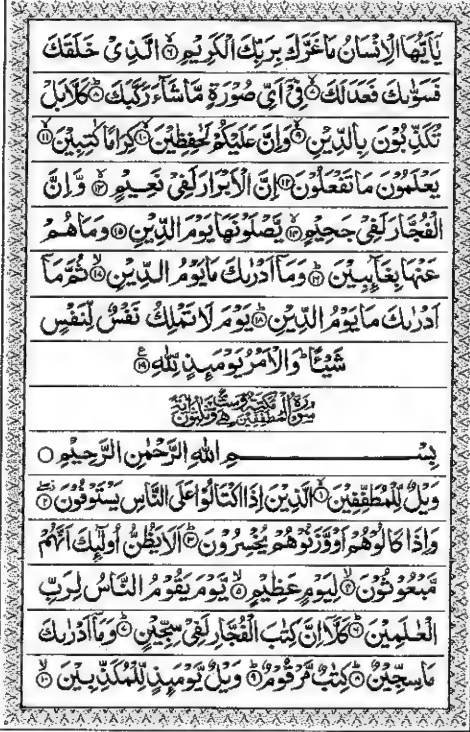 يٰۤاَيُّهَا الْاِنْسَانُ مَا غَرَّكَ بِرَبِّكَ الْكَرِيْمِ ۙ۶ الَّذِىْ خَلَقَكَ
فَسَوّٰىكَ فَعَدَلَكَ ۙ۷ فِىْۤ اَىِّ صُوْرَةٍ مَّا شَآءَ رَكَّبَكَ ؕ۸ كَلَّا بَلْ
تُكَذِّبُوْنَ بِالدِّيْنِ ۙ۹ وَاِنَّ عَلَيْكُمْ لَحٰفِظِيْنَ ۙ۱۰ كِرَامًا كٰتِبِيْنَ ۙ۱۱
يَعْلَمُوْنَ مَا تَفْعَلُوْنَ ۱۲ اِنَّ الْاَبْرَارَ لَفِىْ نَعِيْمٍ ۙ۱۳ وَّاِنَّ
الْفُجَّارَ لَفِىْ جَحِيْمٍ ۙ۱۴ يَّصْلَوْنَهَا يَوْمَ الدِّيْنِ ۱۵ وَمَا هُمْ
عَنْهَا بِغَآئِبِيْنَ ؕ۱۶ وَمَاۤ اَدْرٰىكَ مَا يَوْمُ الدِّيْنِ ۙ۱۷ ثُمَّ مَاۤ
اَدْرٰىكَ مَا يَوْمُ الدِّيْنِ ؕ۱۸ يَوْمَ لَا تَمْلِكُ نَفْسٌ لِّنَفْسٍ
شَيْـًٔا ؕ وَالْاَمْرُ يَوْمَئِذٍ لِّلّٰهِ ۱۹ ع
سُوْرَةُ الْمُطَفِّفِيْنَ مَكِّيَّةٌ وَّهِىَ سِتٌّ وَّثَلٰثُوْنَ اٰيَةً
بِسْمِ اللهِ الرَّحْمٰنِ الرَّحِيْمِ ○
وَيْلٌ لِّلْمُطَفِّفِيْنَ ۙ۱ الَّذِيْنَ اِذَا اكْتَالُوْا عَلَى النَّاسِ يَسْتَوْفُوْنَ ۲
وَاِذَا كَالُوْهُمْ اَوْ وَّزَنُوْهُمْ يُخْسِرُوْنَ ؕ۳ اَلَا يَظُنُّ اُولٰٓئِكَ اَنَّهُمْ
مَّبْعُوْثُوْنَ ۙ۴ لِيَوْمٍ عَظِيْمٍ ۙ۵ يَّوْمَ يَقُوْمُ النَّاسُ لِرَبِّ
الْعٰلَمِيْنَ ؕ۶ كَلَّاۤ اِنَّ كِتٰبَ الْفُجَّارِ لَفِىْ سِجِّيْنٍ ؕ۷ وَمَاۤ اَدْرٰىكَ
مَا سِجِّيْنٌ ؕ۸ كِتٰبٌ مَّرْقُوْمٌ ؕ۹ وَيْلٌ يَّوْمَئِذٍ لِّلْمُكَذِّبِيْنَ ۙ۱۰